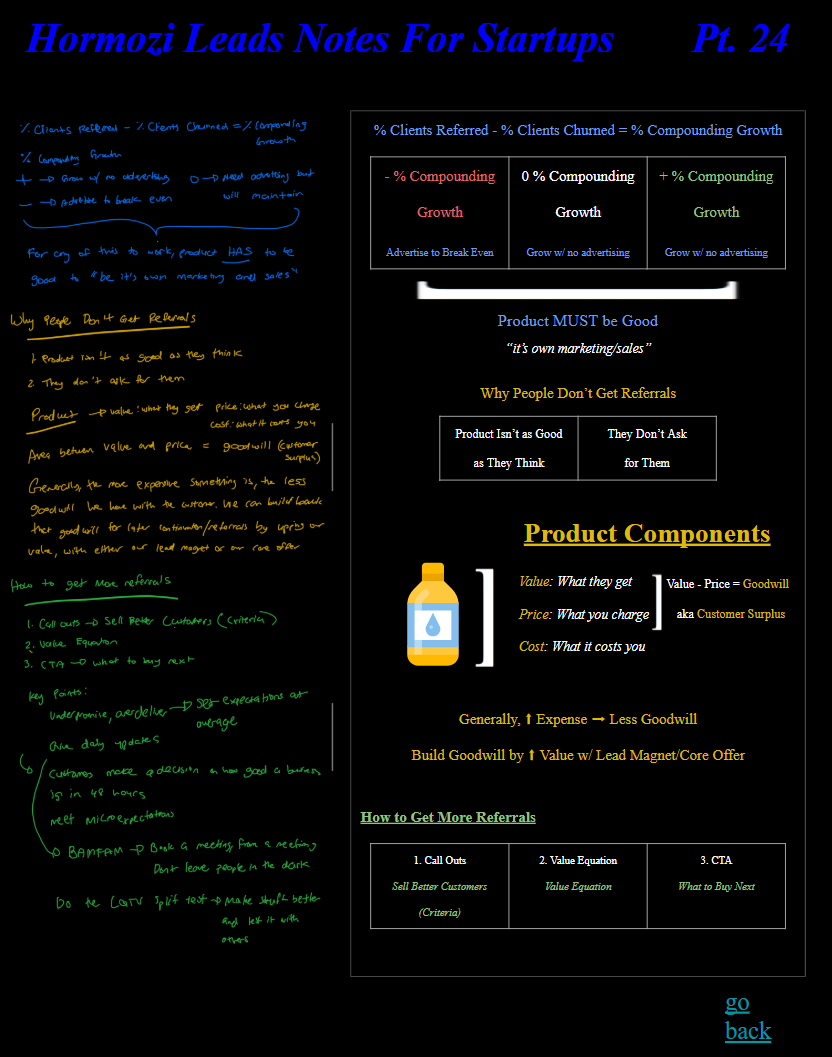 Hormozi Leads Notes For Startups Pt. 24
% Clients Referred - % Clients Churned = % Compounding
Growth
% Compounding Growth
+ → Grow w/ no advertising
0 → Need advertising but
will maintain
- → Advertise to break even
For any of this to work, product HAS to be
good to "be it's own marketing and sales"
Why People Don't Get Referrals
1. Product isn't as good as they think
2. They don't ask for them
Product → value: what they get price: what you charge
cost: what it costs you
Area between value and price = goodwill (customer
surplus)
Generally, the more expensive something is, the less
goodwill we have with the customer. We can build back
that goodwill for later continuation/referrals by upping our
value, with either our lead magnet or our core offer
How to get more referrals
1. Call outs → Sell Better Customers (Criteria)
2. Value Equation
3. CTA → what to buy next
Key Points:
Underpromise, overdeliver → Set expectations at
average
Give daily updates
Customers make a decision on how good a business
is in 48 hours
meet microexpectations
BAMFAM → Book a meeting from a meeting
Don't leave people in the dark
Do the split test → Make stuff better
and test it with
others
% Clients Referred - % Clients Churned = % Compounding Growth
- % Compounding
Growth
Advertise to Break Even
0 % Compounding
Growth
Grow w/ no advertising
+ % Compounding
Growth
Grow w/ no advertising
Product MUST be Good
“it’s own marketing/sales”
Why People Don’t Get Referrals
Product Isn’t as Good
as They Think
They Don’t Ask
for Them
Product Components
Value: What they get
Price: What you charge
Cost: What it costs you
Value - Price = Goodwill
aka Customer Surplus
Generally, ↑ Expense → Less Goodwill
Build Goodwill by ↑ Value w/ Lead Magnet/Core Offer
How to Get More Referrals
1. Call Outs
Sell Better Customers
(Criteria)
2. Value Equation
Value Equation
3. CTA
What to Buy Next
go
back